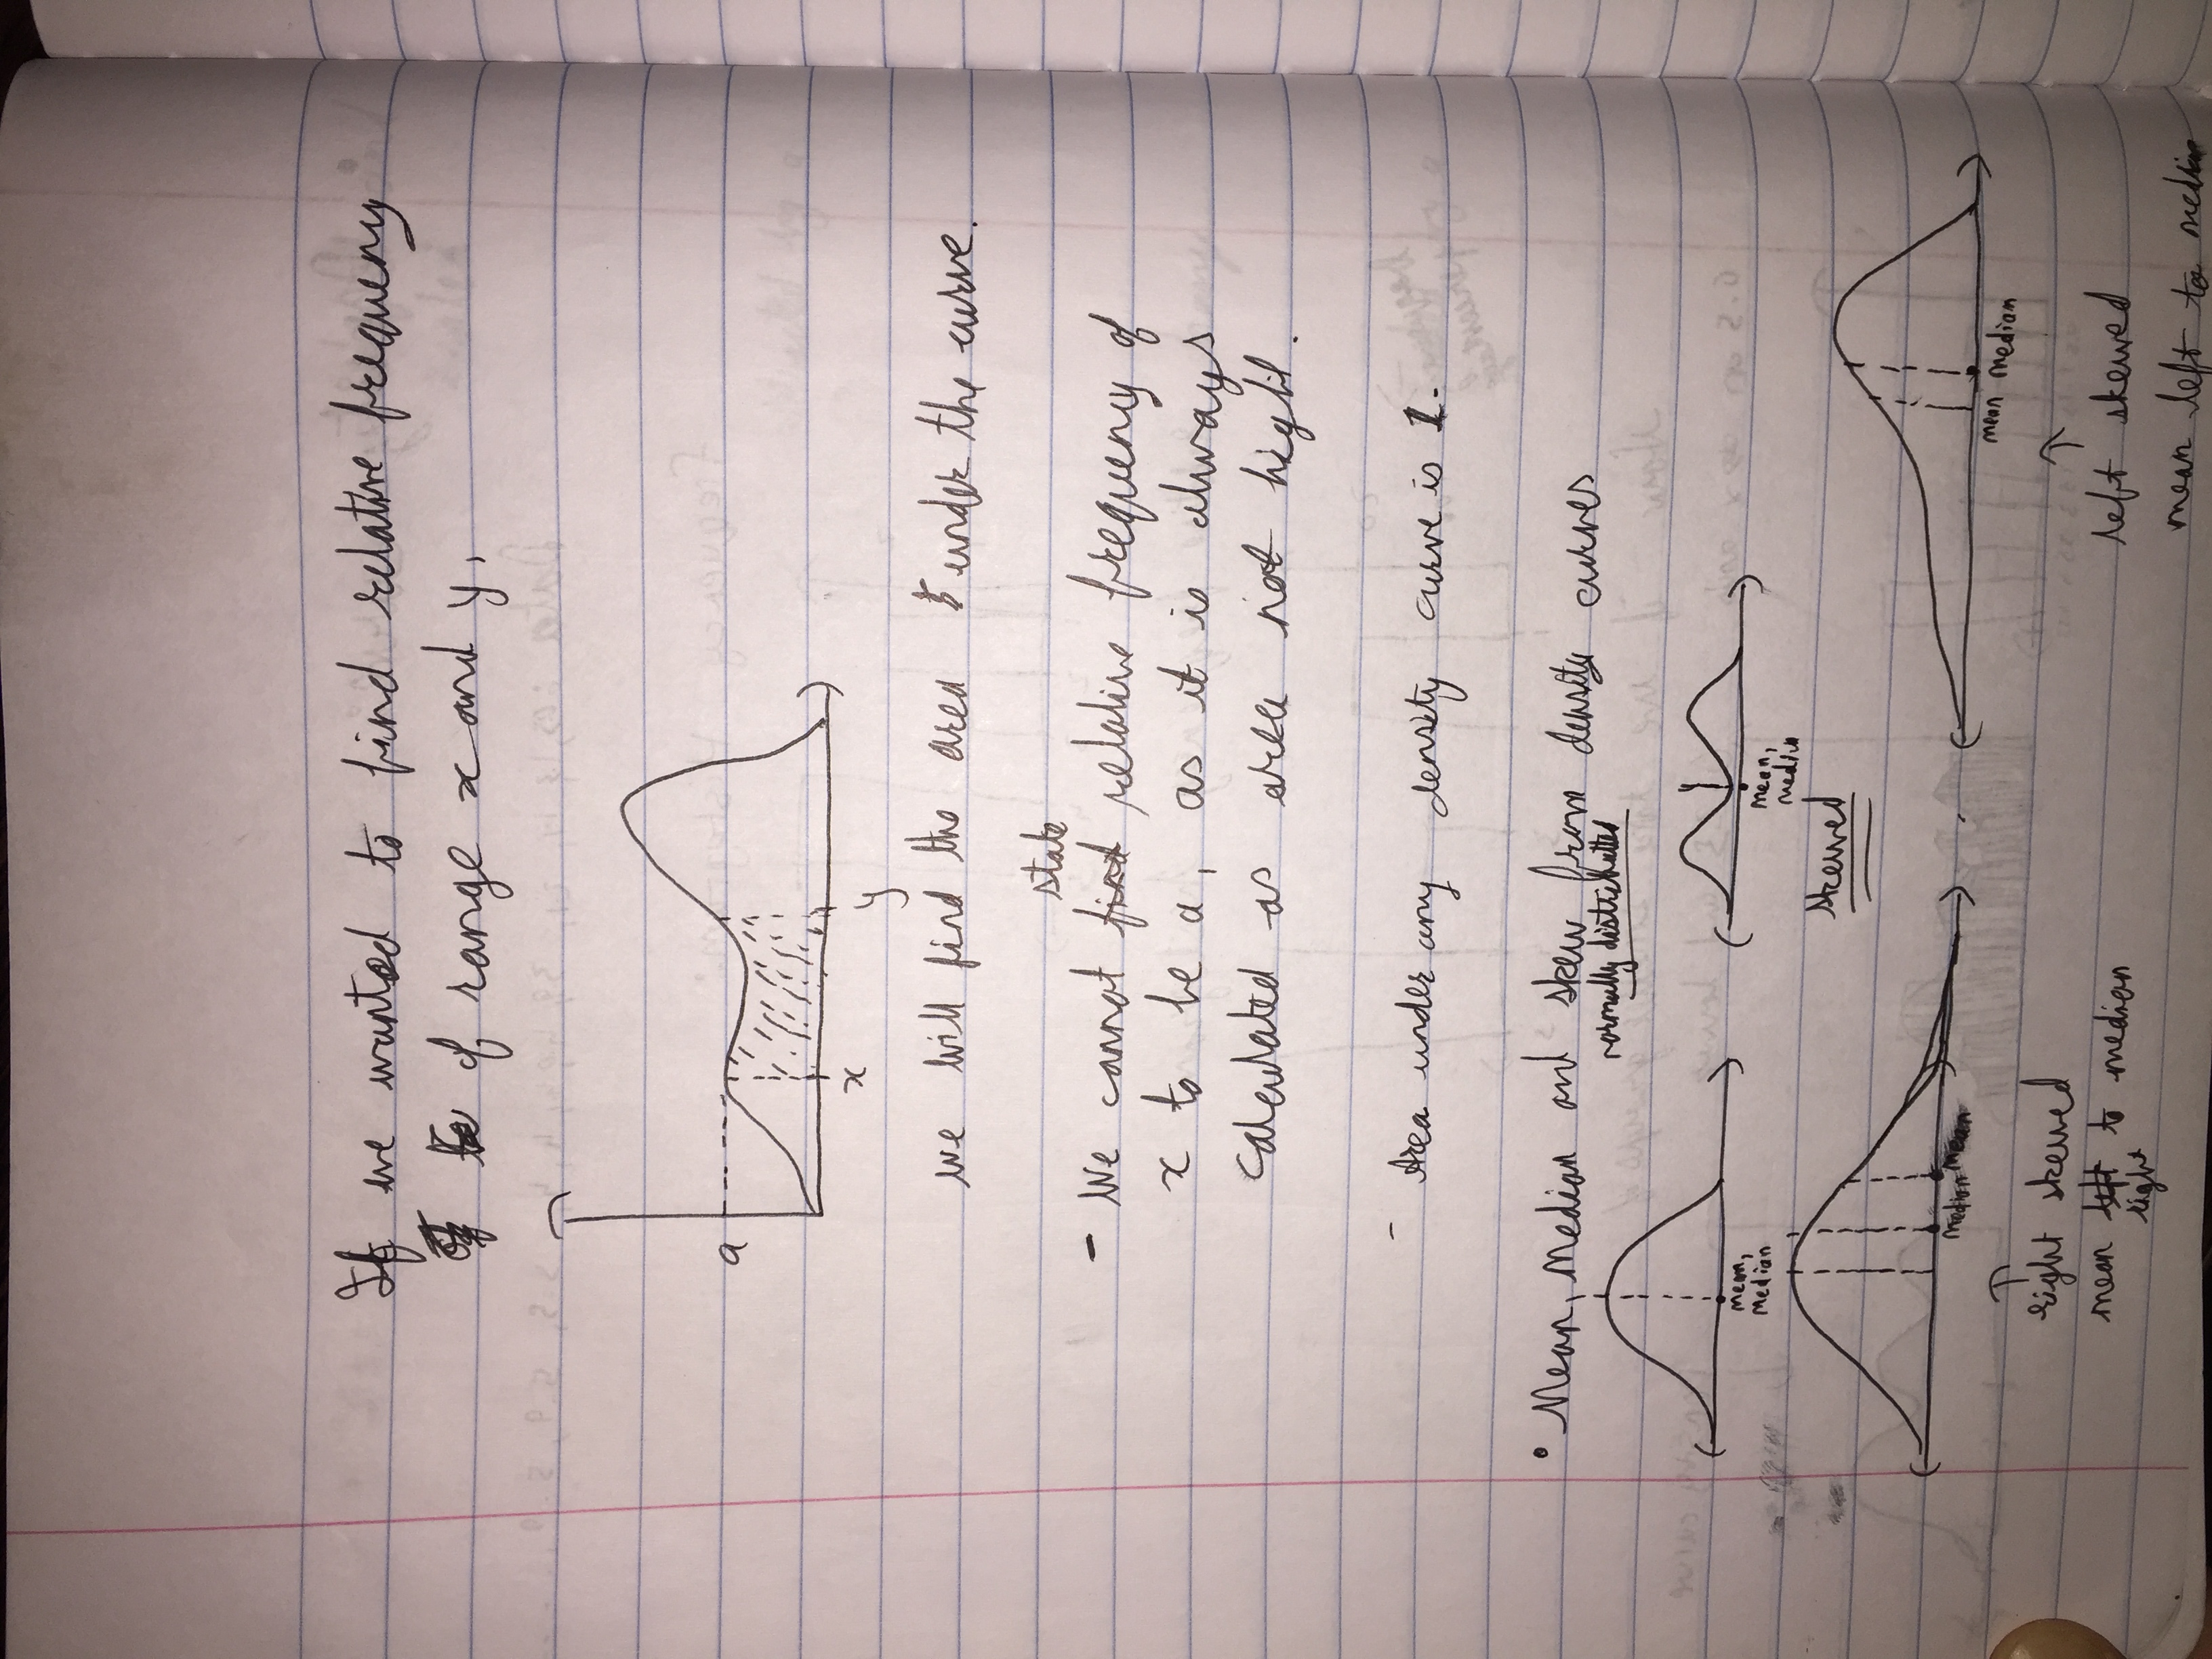 If we wanted to find relative frequency
of range x and y,
a
x
y
we will find the area under the curve.
state
- We cannot find relative frequency of
x to be a, as it is always
calculated as area not hight.
- Area under any density curve is 1.
• Mean, Median and skew from density curves
normally distributted
mean,
median
mean,
median
skewed
median mean
mean median
↑
right skewed
mean left to median
right
↑
left skewed
mean left to median